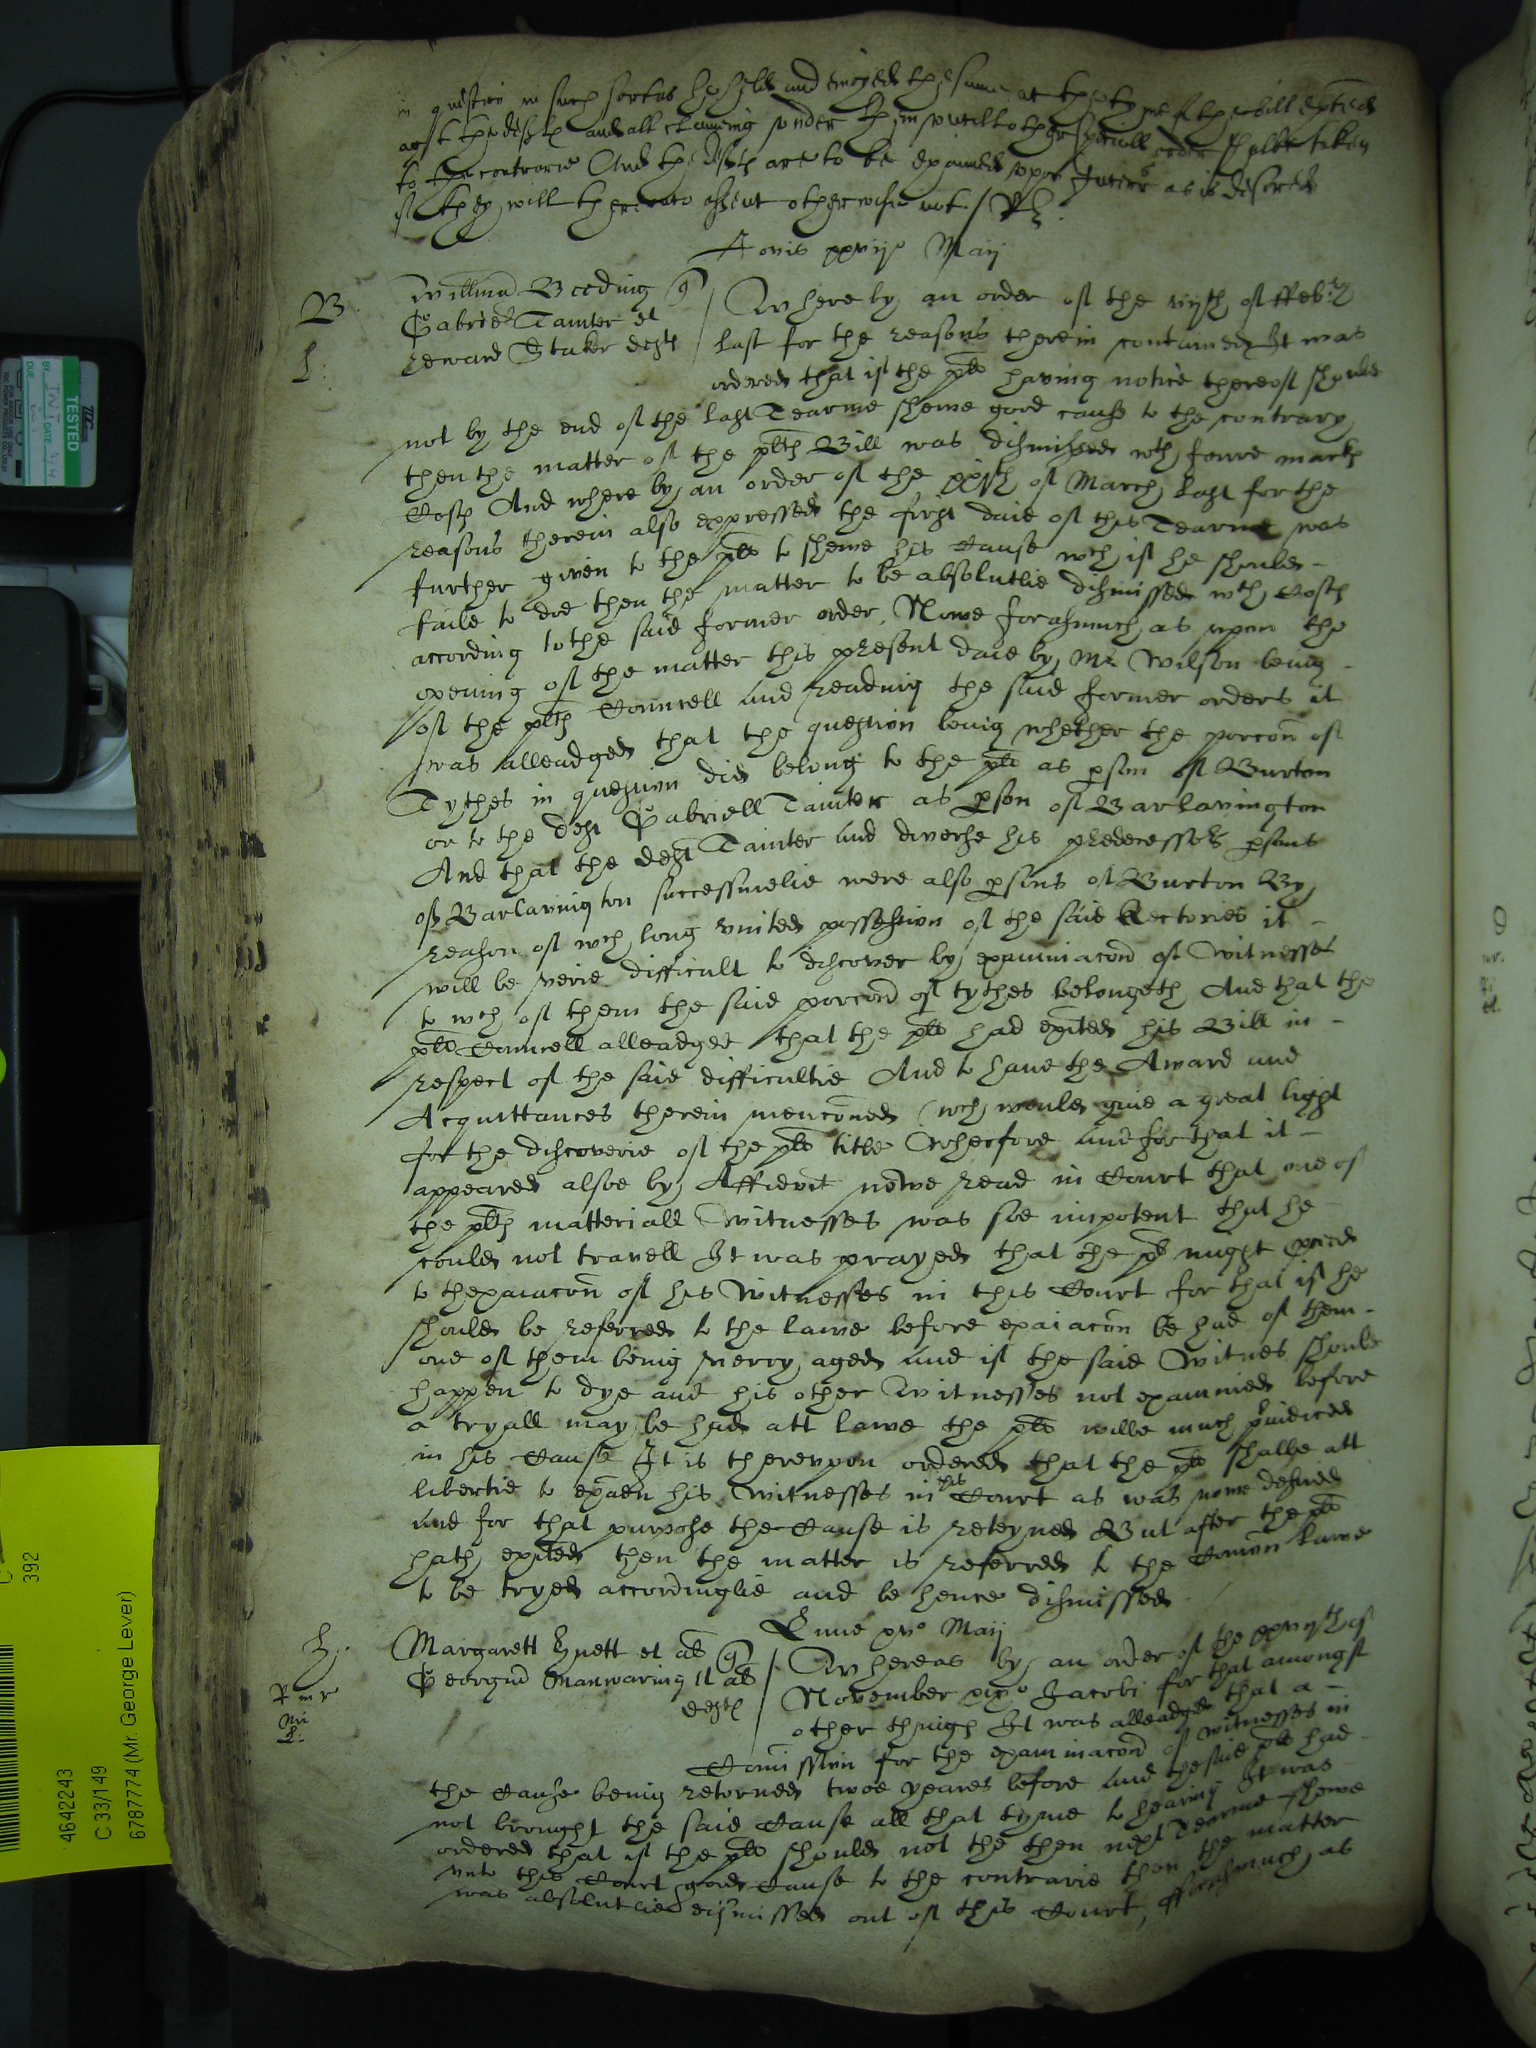 in question in such sort as he helde and enioyed the same at the tyme of the bill exhibited
agst the defts and all claiming vnder them vntill other speciall order shalbe taken
to the contrarie And the defts are to be examined vpon Interr as is desired
if they will therevnto assent otherwise not / Rh
Jovis xxviijo Maij
B
L:
Willmus Beeding q
Gabriel Tainter et
Edward Staker defts
Where by an order of the vijth of ffebry
last for the reasons therein contained It was
ordered that if the plt having notice thereof should
not by the end of the last Tearme shewe good cause to the contrary
then the matter of the plts Bill was dismissed wth foure marks
Costs And where by an order of the xxjth of March last for the
reasons therein also expressed the first daie of this Tearme was
further given to the plt to shewe his cause wch if he should
faile to doe then the matter to be absolutlie dismissed wth costs
according to the said former order. Nowe forasmuch as vpon the
opening of the matter this present daie by Mr Wilson being
of the plts Councell and reading the said former orders it
was alleadged that the question being whether the porcon of
Tythes in question did belong to the plt as pson of Burton
or to the deft Gabriell Tainter as pson of Barlavington
And that the deft Tainter and diverse his predecessors psons
of Barlavington successivelie were also psons of Burton By
reason of wch long vnited possession of the said Rectories it
will be verie difficult to discover by examinacon of Witnesses
to wch of them the said porcon of tythes belongeth And that the
plts Councell alleadged that the plt had exited his Bill in
respect of the said difficultie And to have the Award and
Acquittances therein menconed (wch would give a great light
for the discoverie of the plts title Wherfore and for that it
appeared alsoe by Affidavit nowe read in Court that one of
the plts materiall Witnesses was soe impotent that he
could not travell It was prayed that the plt might proceed
to thexaiacon of his Witnesses in this Court for that if he
should be referred to the lawe before exaiacon be had of them
one of them being verry aged and if the said Witnes should
happen to dye and his other Witnesses not examined before
a tryall may be had att lawe the plt wilbe much preiudiced
in his Cause It is therevpon ordered that the plt shalbe att
libertie to exaen his Witnesses in this Court as was nowe desired
and for that purpose the Cause is reteyned But after the plt
hath exited then the matter is referred to the Comon Lawe
to be tryed accordinglie and be hence dismissed
Lune xvo Maij
h.
R mr
Mi
L.
Margarett Hnett et als q
Georgiu Manwaring et als
defts
Whereas by an order of the xxviijth of
November xixo Jacobi for that amongst
other things It was alleadged that a
Comission for the examinacon of witnesses in
the Cause being retorned twoe yeares before and the said plt had
not brought the said Cause all that tyme to hearing It was
ordered that if the plt should not the then next Tearme shewe
vnto this Court good Cause to the contrarie then the matter
was absolutlie dismissed out of this Court, fforasmuch as
TESTED
4642243
C 33/149
6787774 (Mr. George Lever)
392